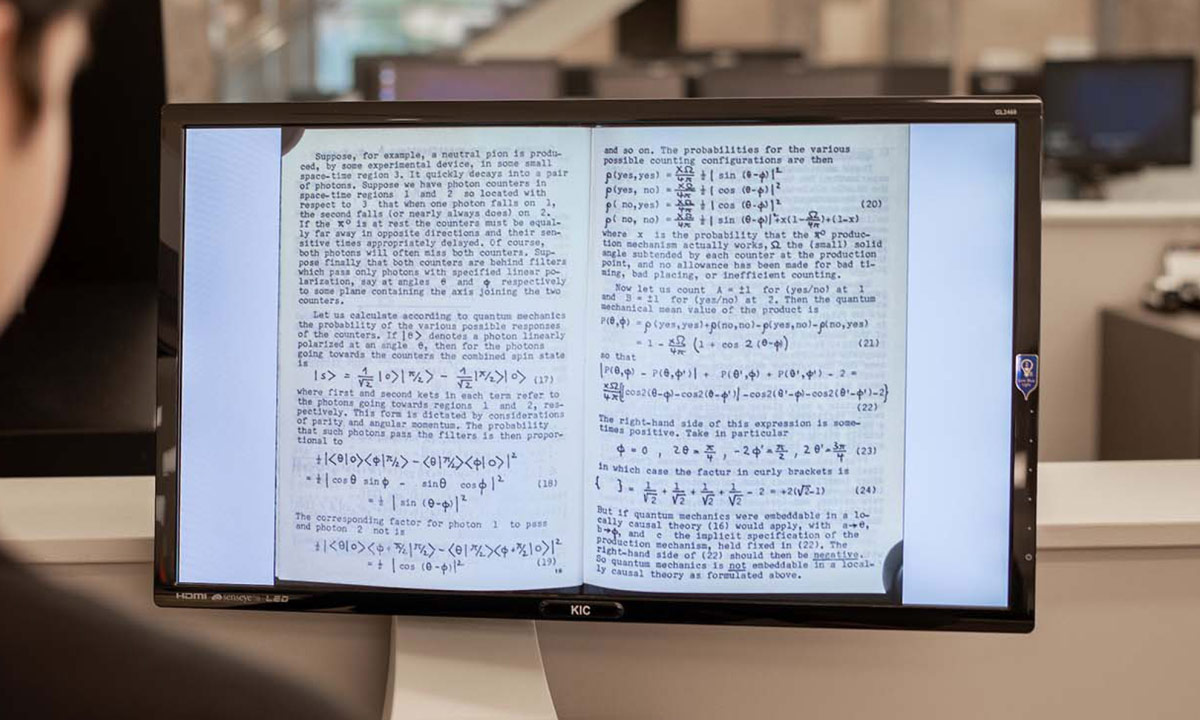 GL2460
Suppose, for example, a neutral pion is produ-
ced, by some experimental device, in some small
space-time region 3. It quickly decays into a pair
of photons. Suppose we have photon counters in
space-time regions 1 and 2 so located with
respect to 3 that when one photon falls on 1,
the second falls (or nearly always does) on 2.
If the π° is at rest the counters must be equal-
ly far away in opposite directions and their sen-
sitive times appropriately delayed. Of course,
both photons will often miss both counters. Sup-
pose finally that both counters are behind filters
which pass only photons with specified linear po-
larization, say at angles θ and φ respectively
to some plane containing the axis joining the two
counters.
Let us calculate according to quantum mechanics
the probability of the various possible responses
of the counters. If |θ> denotes a photon linearly
polarized at an angle θ, then for the photons
going towards the counters the combined spin state
is
|s> = 1/√2 |0>|π/2> - 1/√2 |π/2>|0> (17)
where first and second kets in each term refer to
the photons going towards regions 1 and 2, res-
pectively. This form is dictated by considerations
of parity and angular momentum. The probability
that such photons pass the filters is then propor-
tional to
½|<θ|0><φ|π/2> - <θ|π/2><φ|0>|²
= ½| cosθ sinφ - sinθ cosφ|² (18)
= ½ | sin (θ-φ)|²
The corresponding factor for photon 1 to pass
and photon 2 not is
½|<θ|0><φ+π/2|π/2> - <θ|π/2><φ+π/2|0>|²
= ½ | cos (θ-φ)|² (19)
and so on. The probabilities for the various
possible counting configurations are then
ρ(yes,yes) = XΩ/4π ½| sin (θ-φ)|²
ρ(yes, no) = XΩ/4π ½| cos (θ-φ)|²
ρ( no,yes) = XΩ/4π ½| cos (θ-φ)|² (20)
ρ( no, no) = XΩ/4π ½| sin (θ-φ)|²+x(1-Ω/4π)+(1-x)
where x is the probability that the π° produc-
tion mechanism actually works, Ω the (small) solid
angle subtended by each counter at the production
point, and no allowance has been made for bad ti-
ming, bad placing, or inefficient counting.
Now let us count A = ±1 for (yes/no) at 1
and B = ±1 for (yes/no) at 2. Then the quantum
mechanical mean value of the product is
P(θ,φ) = ρ(yes,yes)+ρ(no,no)-ρ(yes,no)-ρ(no,yes)
= 1 - XΩ/4π (1 + cos 2 (θ-φ)) (21)
so that
|P(θ,φ) - P(θ,φ')| + P(θ',φ) + P(θ',φ') - 2 =
XΩ/4π{|cos2(θ-φ)-cos2(θ-φ')|-cos2(θ'-φ)-cos2(θ'-φ')-2}
(22)
The right-hand side of this expression is some-
times positive. Take in particular
φ = 0 , 2θ = π/4 , -2φ' = π/2 , 2θ' = 3π/4 (23)
in which case the factur in curly brackets is
{ } = 1/√2 + 1/√2 + 1/√2 + 1/√2 - 2 = +2(√2-1) (24)
But if quantum mechanics were embeddable in a lo-
cally causal theory (16) would apply, with a→θ,
b→φ, and c the implicit specification of the
production mechanism, held fixed in (22). The
right-hand side of (22) should then be negative.
So quantum mechanics is not embeddable in a local-
ly causal theory as formulated above.
HDMI senseye LED
KIC